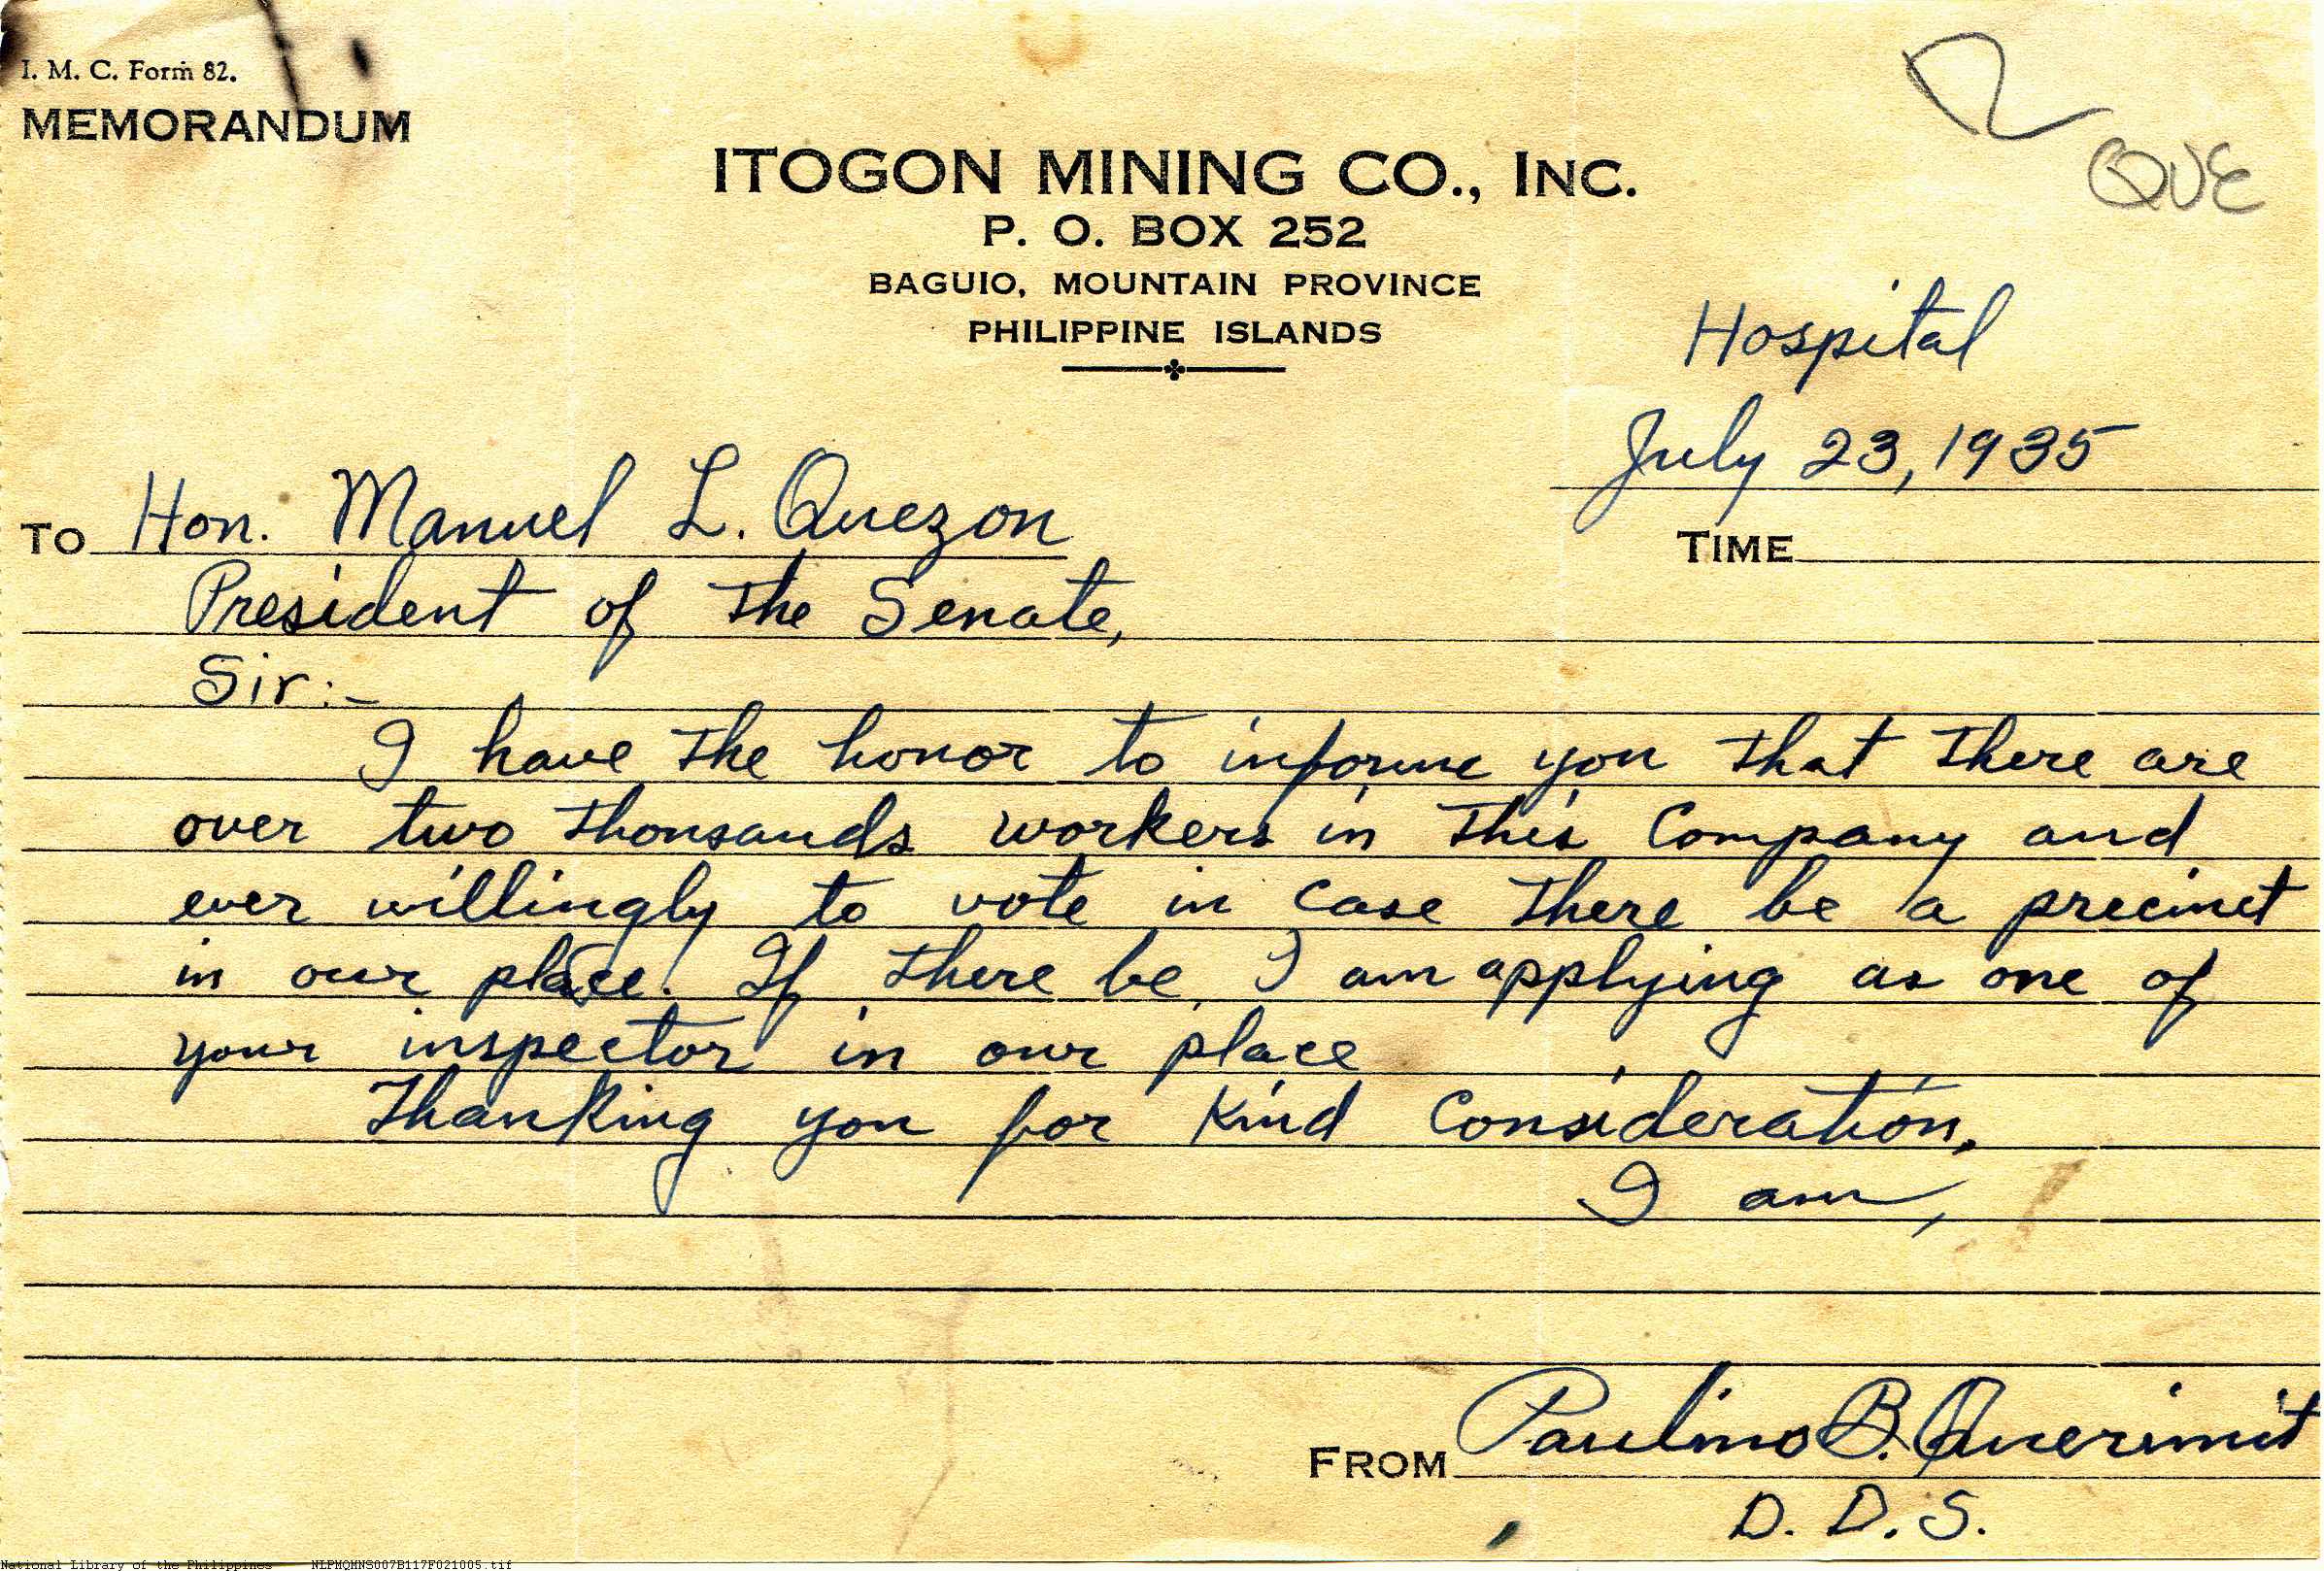 I. M. C. Form 82.
MEMORANDUM
QUE
ITOGON MINING CO., INC.
P. O. BOX 252
BAGUIO, MOUNTAIN PROVINCE
PHILIPPINE ISLANDS
Hospital
July 23, 1935
TO Hon. Manuel L. Quezon
TIME
President of the Senate,
Sir:-
I have the honor to informe you that there are
over two thousands workers in this Company and
ever willingly to vote in case there be a precinct
in our place. If there be, I am applying as one of
your inspector in our place
Thanking you for kind consideration,
I am,
FROM Paulino B. Querimit
D. D. S.
National Library of the Philippines NLPMQMNS007B117F021005.tif